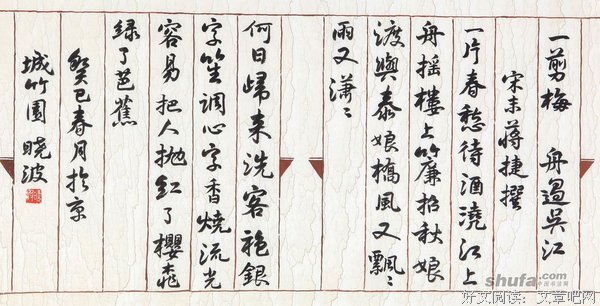 一剪梅 舟過吳江
宋末蔣捷撰
一片春愁待酒澆江上
舟搖樓上簾招秋娘
渡與泰娘橋風又飄〻
雨又瀟〻
何日歸來洗客袍銀
字笙調心字香燒流光
容易把人拋紅了櫻桃
綠了芭蕉
癸巳春月於京
城竹園曉波
shufa.com
中国书法网
好文阅读：文章吧网